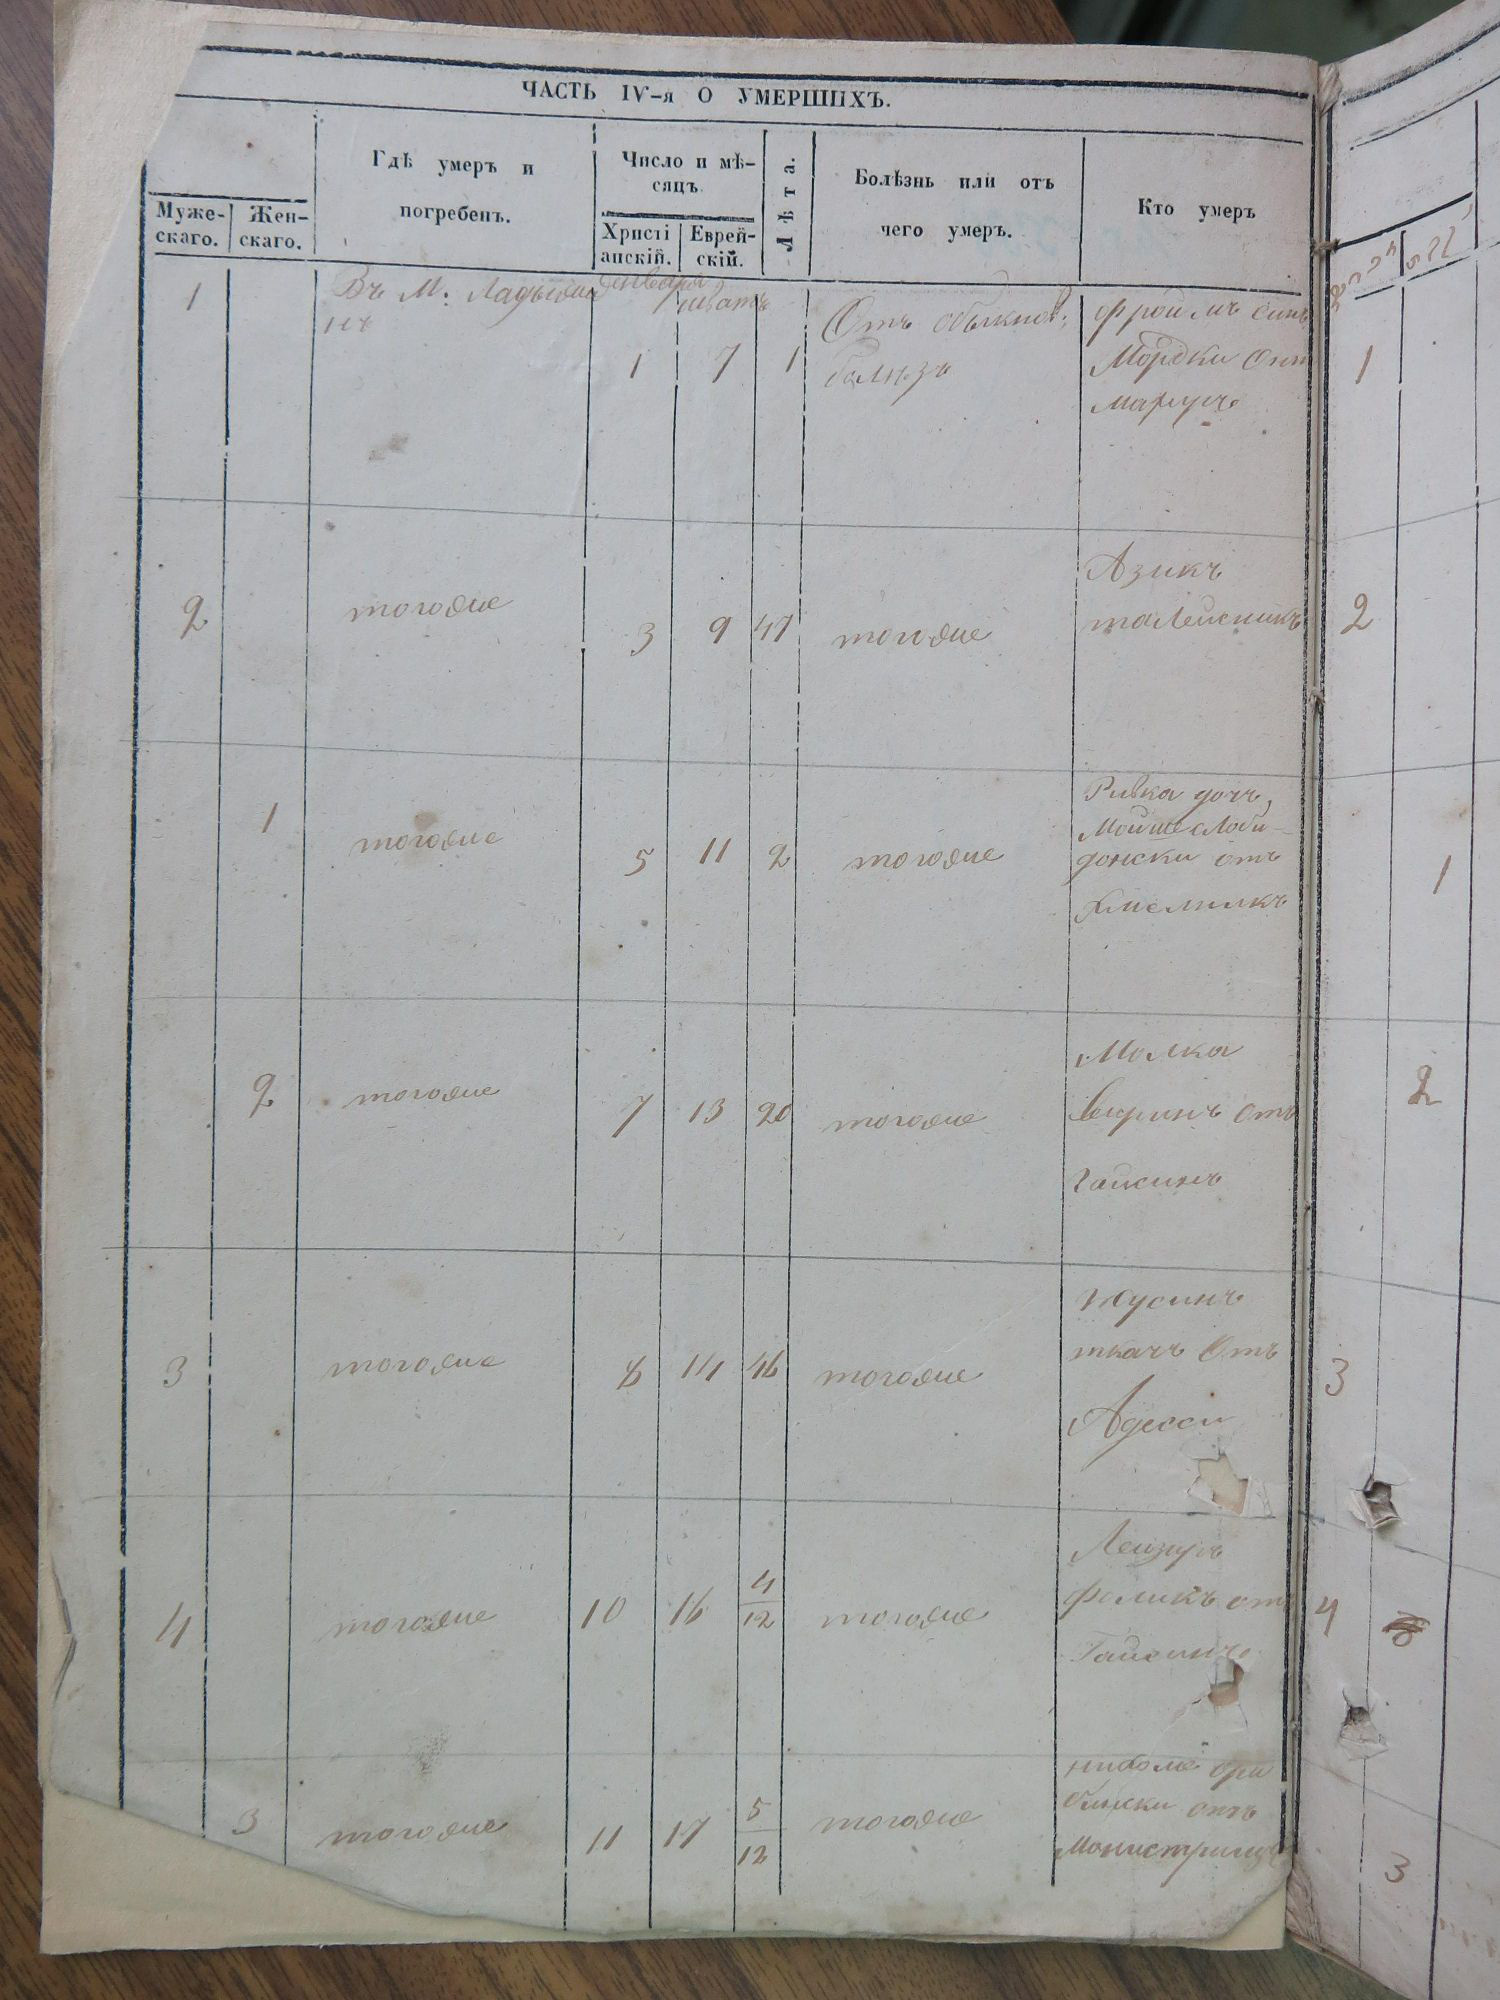 ЧАСТЬ IV-я О УМЕРШИХЪ.
Муже-
скаго.
Жен-
скаго.
Гдѣ умеръ и
погребенъ.
Число и мѣ-
сяцъ
Христі
анскій.
Еврей-
скій.
Лѣта.
Болѣзнь или отъ
чего умеръ.
Кто умеръ
1
Въ М: Ладыжи
нъ
Генваря
1
Шватъ
7
1
Отъ обыкнов:
болѣзъ
фроимъ синъ
Мордки
1
2
тогожие
3
9
47
тогожие
Азикъ
2
1
тогожие
5
11
2
тогожие
Ривка дочъ
Мойше Слоби-
донски отъ
Хмелникъ
1
2
тогожие
7
13
20
тогожие
Малка
отъ
Гайсинъ
2
3
тогожие
8
14
46
тогожие
Нусинъ
ткачъ отъ
Адесси
3
4
тогожие
10
16
4
12
тогожие
Лейзуръ
фаликъ отъ
Гайсинъ
4
3
тогожие
11
17
5
12
тогожие
отъ
Монистрищъ
3